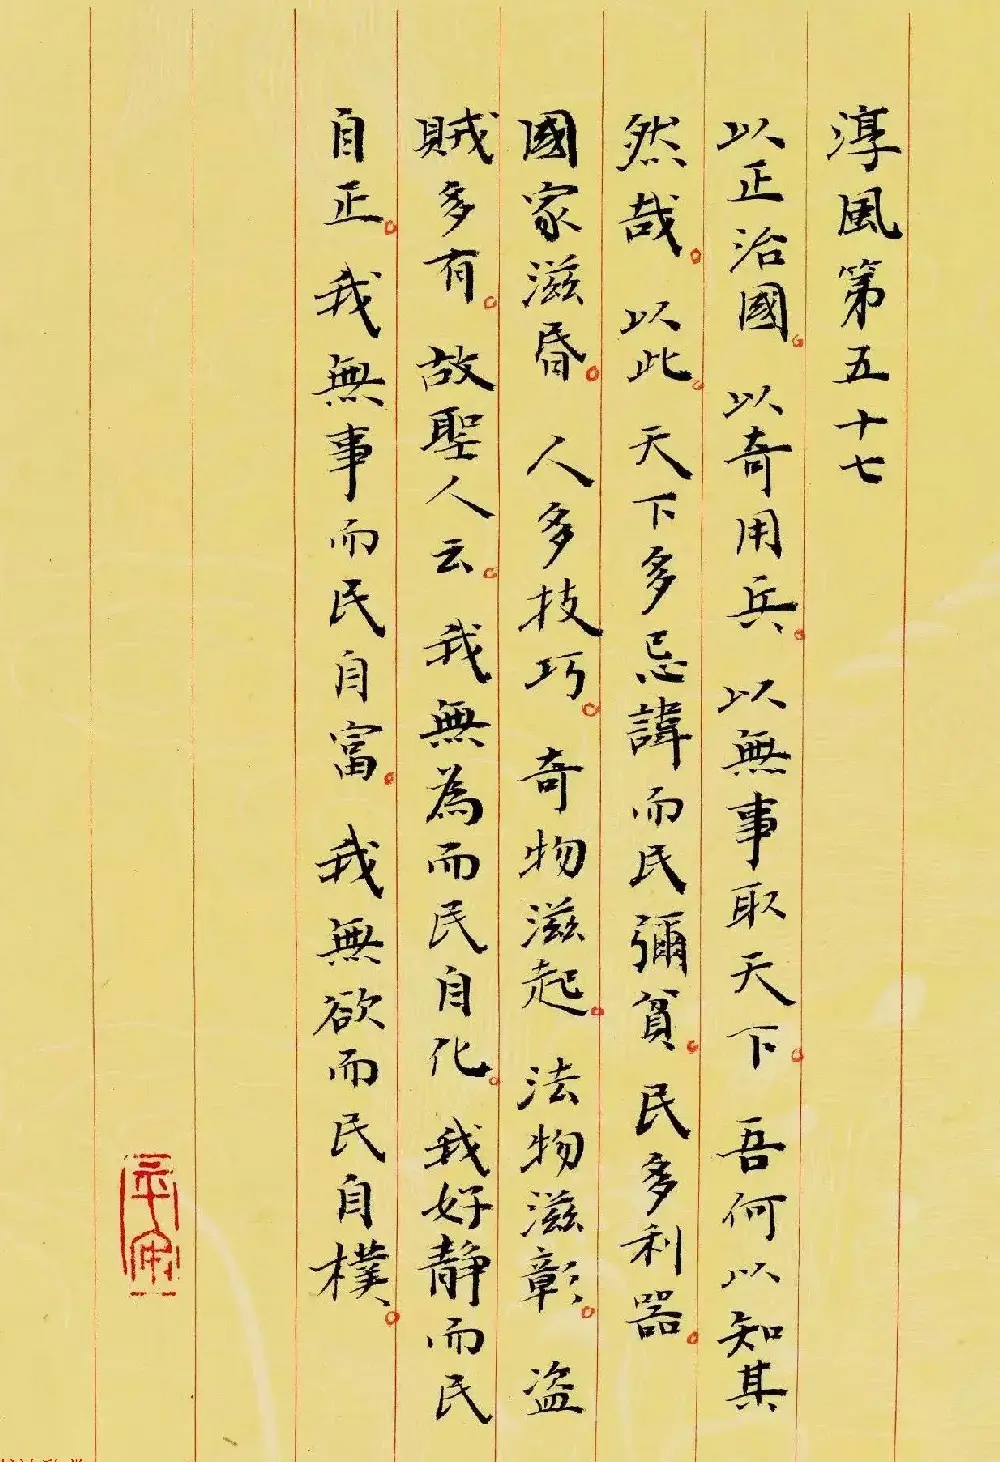 淳風第五十七
以正治國。以奇用兵。以無事取天下。吾何以知其
然哉。以此。天下多忌諱而民彌貧。民多利器。
國家滋昏。人多技巧。奇物滋起。法物滋彰。盜
賊多有。故聖人云。我無為而民自化。我好靜而民
自正。我無事而民自富。我無欲而民自樸。